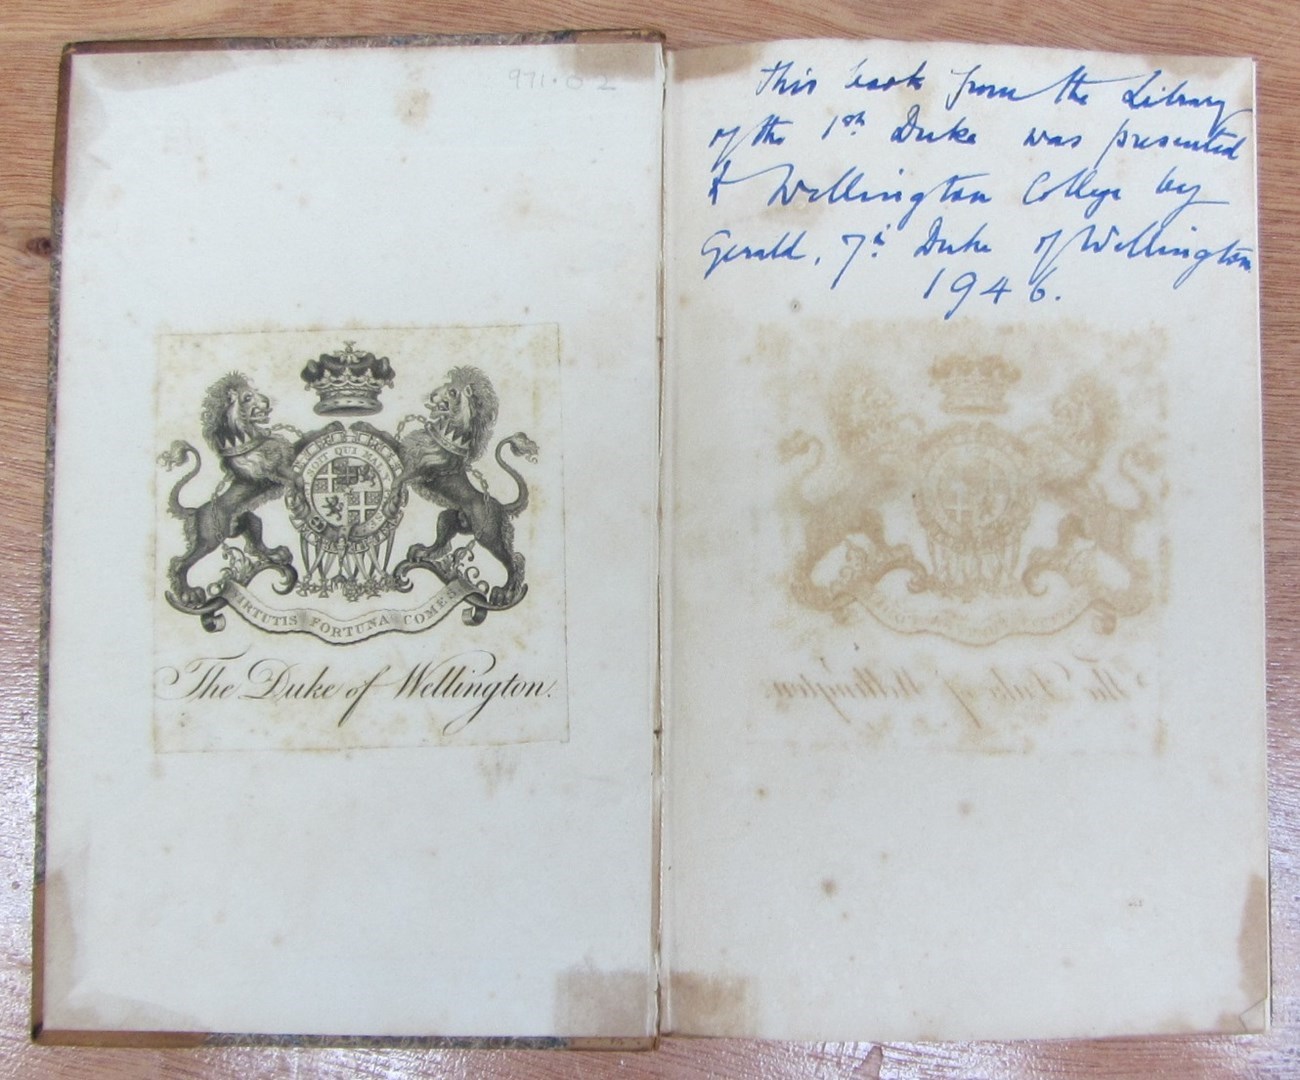 971.02
SOIT QUI MAL Y
VIRTUTIS FORTUNA COMES
The Duke of Wellington.
This book from the Library
of the 1st Duke was presented
to Wellington College by
Gerald, 7th Duke of Wellington
1946.
The Duke of Wellington.